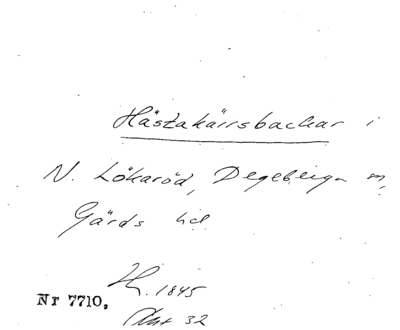 Hästakärrsbackar i
N. Lökaröd, Degeberga sn,
Gärds hd.
H. 1845
Nr 7710.
32